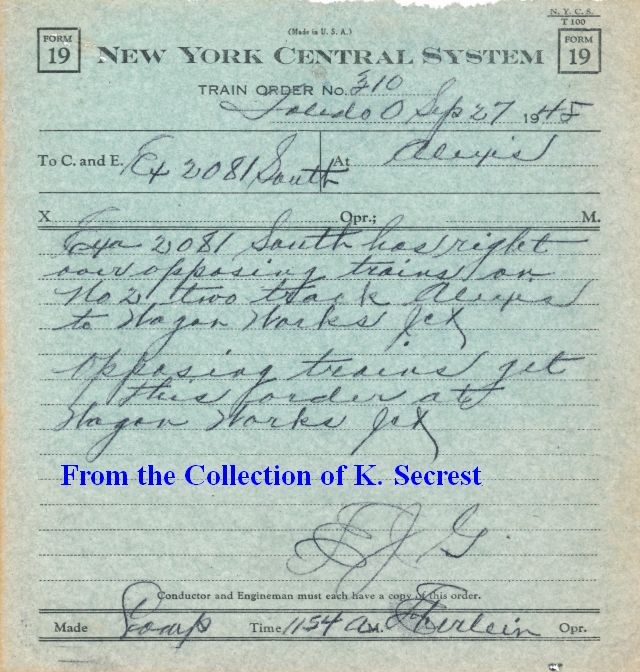 N. Y. C. S.
T 100
(Made in U. S. A.)
FORM 19 NEW YORK CENTRAL SYSTEM FORM 19
TRAIN ORDER No. 310
Toledo O Sep 27 1945
To C. and E. Ex 2081 South At Alexis
X Opr.; M.
Exa 2081 South has right
over opposing trains on
No 2 two track Alexis
to Wagon Works Jct
Opposing trains get
this order at
Wagon Works Jct
From the Collection of K. Secrest
E J G
Conductor and Engineman must each have a copy of this order.
Made Comp Time 1154 A M. Opr.